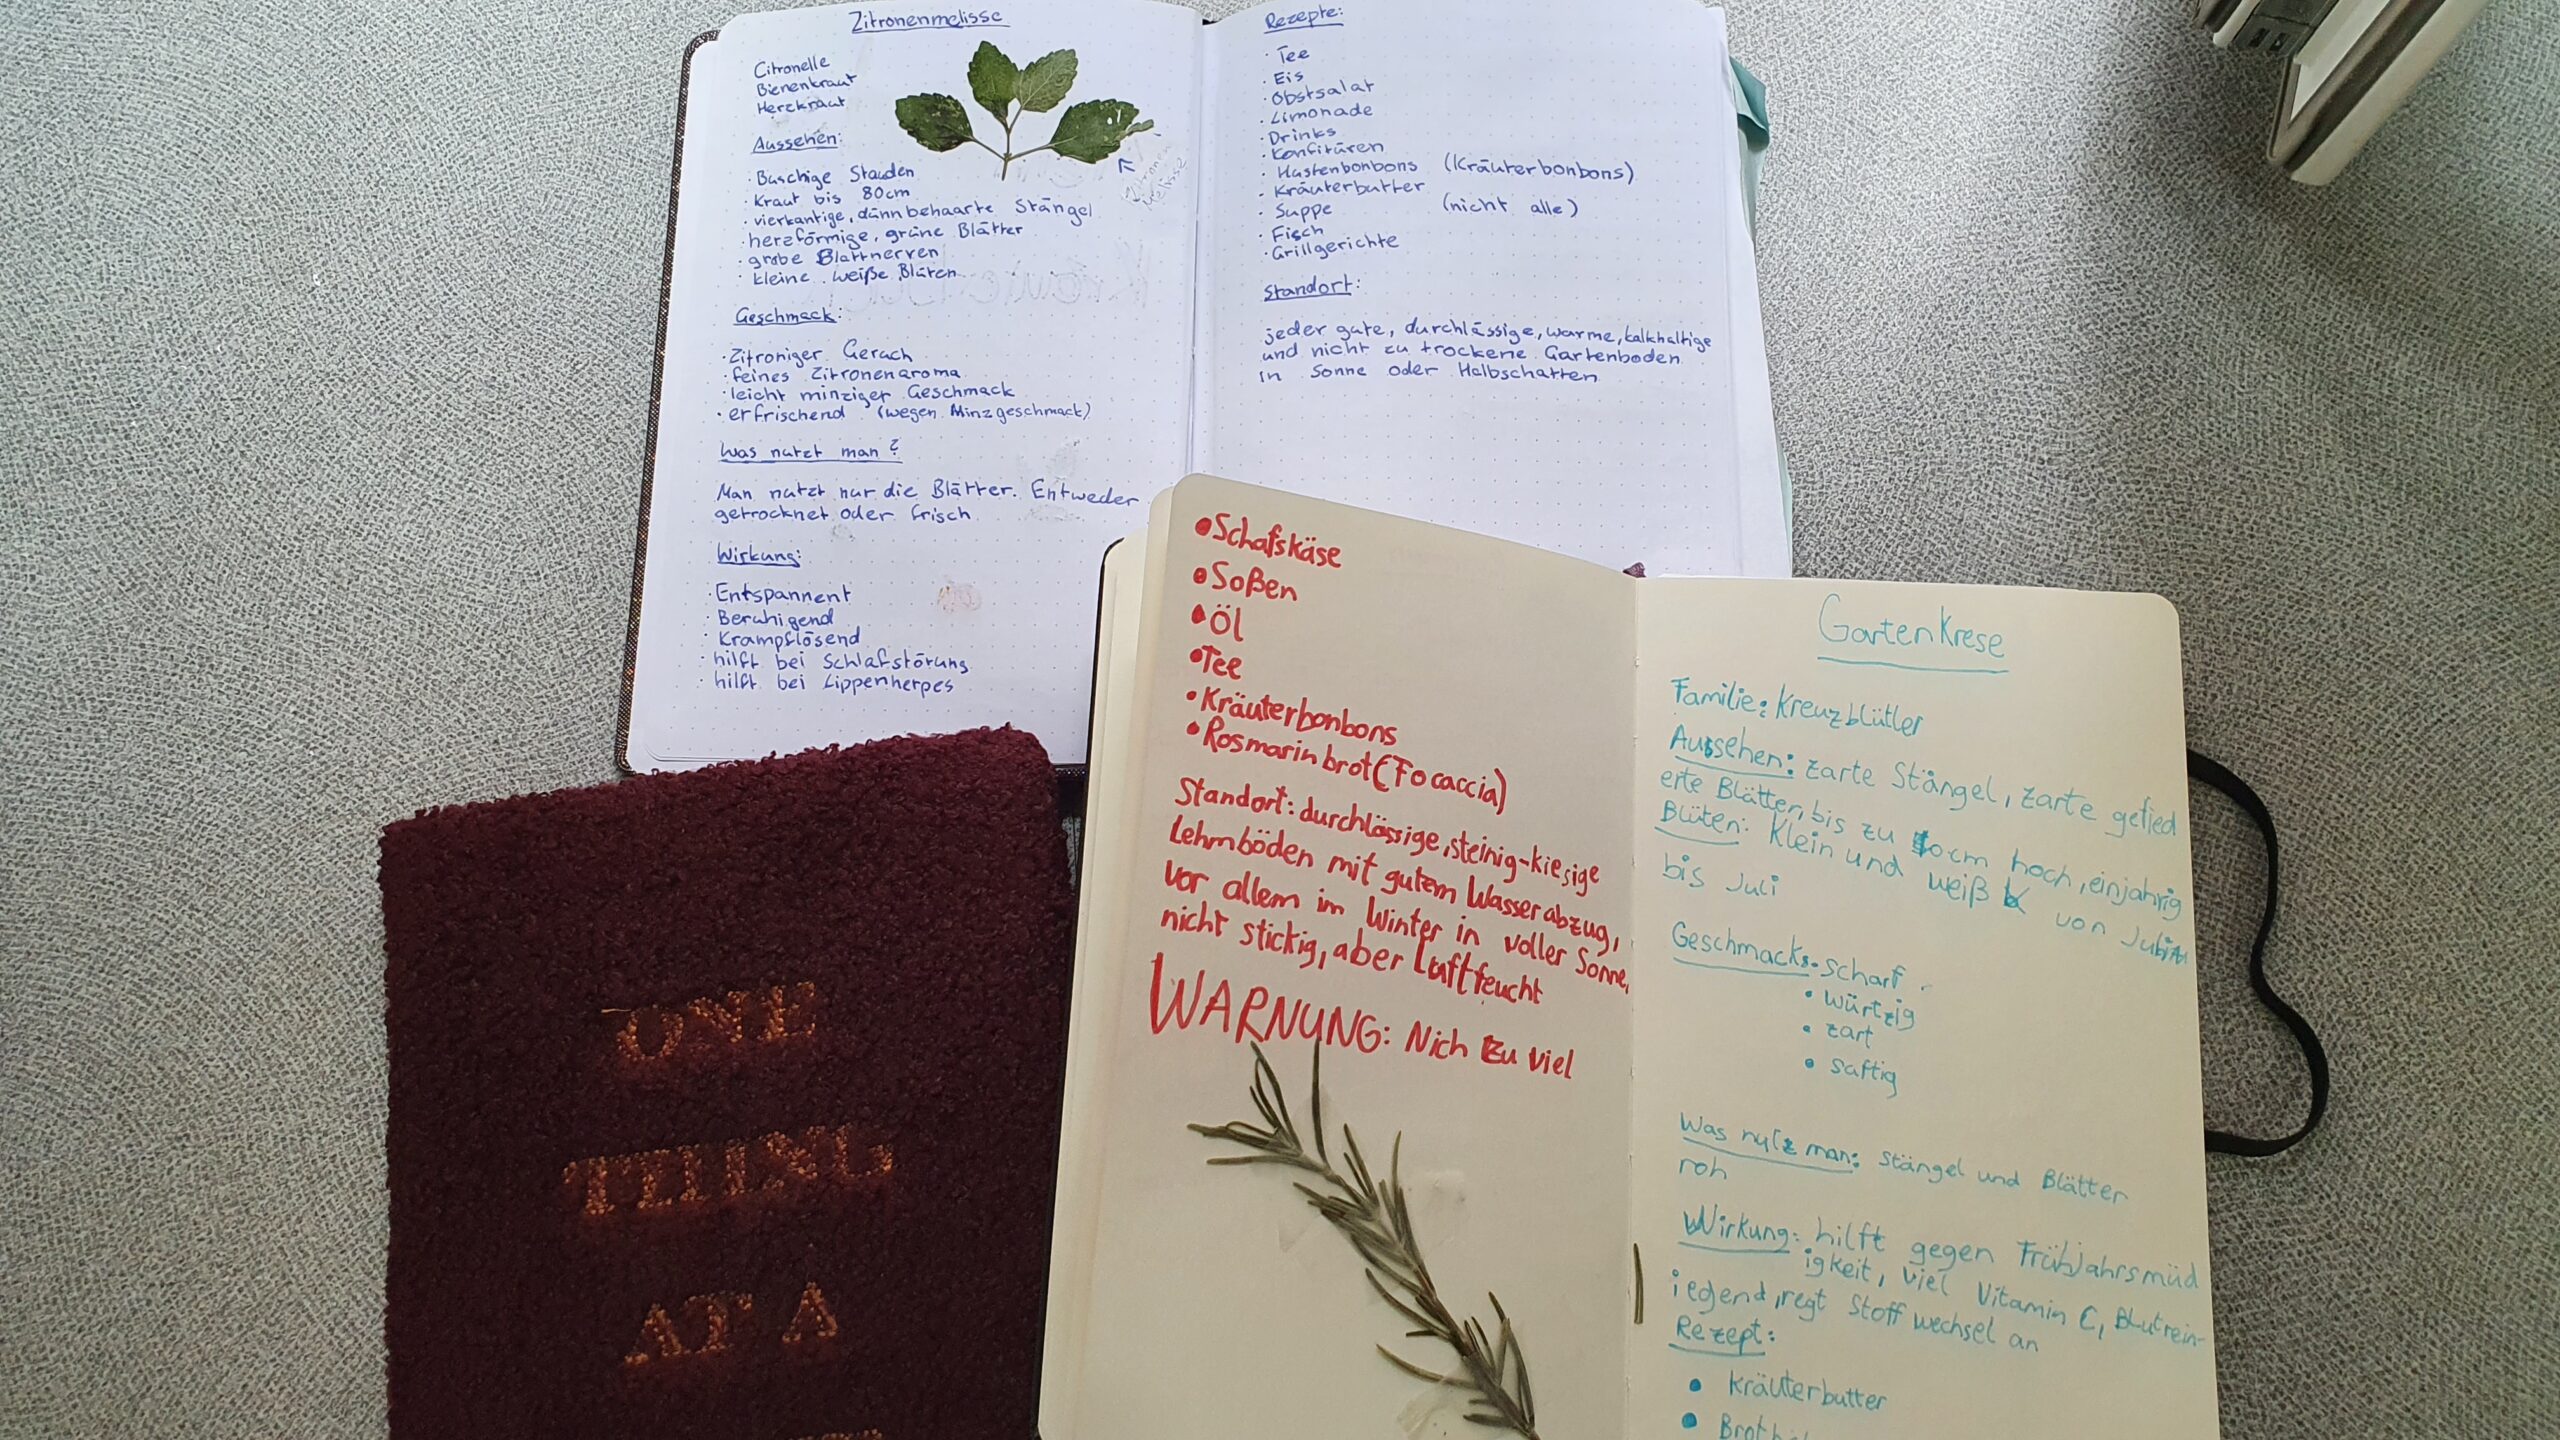 Zitronenmelisse
Citronelle
Bienenkraut
Herzkraut
Aussehen:
· Buschige Stauden
· Kraut bis 80cm
· vierkantige, dünn behaarte Stängel
· herzförmige, grüne Blätter
· grobe Blattnerven
· kleine weiße Blüten
Zitronen
Melisse
Geschmack:
· Zitroniger Geruch
· feines Zitronenaroma
· leicht minziger Geschmack
· erfrischend (wegen Minzgeschmack)
Was nutzt man?
Man nutzt nur die Blätter. Entweder
getrocknet oder frisch
Wirkung:
· Entspannent
· Beruhigend
· Krampflösend
· hilft bei Schlafstörung
· hilft bei Lippenherpes
Rezepte:
· Tee
· Eis
· Obstsalat
· Limonade
· Drinks
· Konfitüren
· Hustenbonbons (Kräuterbonbons)
· Kräuterbutter
· Suppe (nicht alle)
· Fisch
· Grillgerichte
Standort:
jeder gute, durchlässige, warme, kalkhaltige
und nicht zu trockene Gartenboden
in Sonne oder Halbschatten
• Schafskäse
• Soßen
• Öl
• Tee
• Kräuterbonbons
• Rosmarinbrot (Focaccia)
Standort: durchlässige, steinig-kiesige
Lehmböden mit gutem Wasserabzug,
vor allem im Winter in voller Sonne,
nicht stickig, aber Luftfeucht
WARNUNG: Nich zu viel
GartenKrese
Familie: Kreuzblütler
Aussehen: zarte Stängel, zarte gefied
erte Blätter, bis zu cm hoch, einjahrig
Blüten: Klein und weiß von
bis Juli
Geschmack: • scharf
• würtzig
• zart
• saftig
Was nutz man: Stängel und Blätter
roh
Wirkung: hilft gegen Frühjahrsmüd
igkeit, viel Vitamin C, Blutrein-
iegend, regt Stoffwechsel an
Rezept:
• Kräuterbutter
•
ONE
THING
AT A